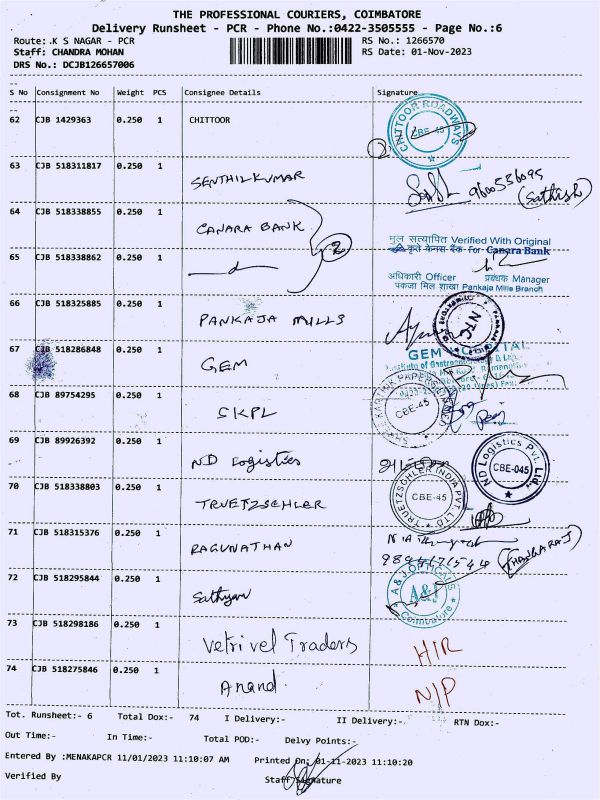 THE PROFESSIONAL COURIERS, COIMBATORE
Delivery Runsheet - PCR - Phone No.:0422-3505555 - Page No.:6
Route:.K S NAGAR - PCR RS No.: 1266570
Staff: CHANDRA MOHAN RS Date: 01-Nov-2023
DRS No.: DCJB126657006
S No Consignment No Weight PCS Consignee Details Signature
62 CJB 1429363 0.250 1 CHITTOOR
CHITTOOR ROADWAYS CBE-45
2
63 CJB 518311817 0.250 1 SENTHILKUMAR
9600536095 (Sathish)
64 CJB 518338855 0.250 1 CANARA BANK
2
मुल सत्यापित Verified With Original
कृते केनरा बैंक For Canara Bank
65 CJB 518338862 0.250 1
अधिकारी Officer प्रबंधक Manager
पंकजा मिल शाखा Pankaja Mills Branch
66 CJB 518325885 0.250 1 PANKAJA MILLS
NTC
67 CJB 518286848 0.250 1 GEM
GEM
Institute of Gastroenterology
68 CJB 89754295 0.250 1 SKPL
CBE-45
69 CJB 89926392 0.250 1 ND Logistics
ND Logistics Pvt. Ltd., CBE-045
70 CJB 518338803 0.250 1 TRUETZSCHLER
TRUETZSCHLER INDIA PVT. LTD CBE-45
71 CJB 518315376 0.250 1 RAGUNATHAN
(THANGARAJ)
72 CJB 518295844 0.250 1 Sathyan
A & J OPTICALS A&J Coimbatore
73 CJB 518298186 0.250 1 Vetrivel Traders HIR
74 CJB 518275846 0.250 1 Anand. N/P
Tot. Runsheet:- 6 Total Dox:- 74 I Delivery:- II Delivery:- RTN Dox:-
Out Time:- In Time:- Total POD:- Delvy Points:-
Entered By :MENAKAPCR 11/01/2023 11:10:07 AM Printed On: 01-11-2023 11:10:20
Verified By Staff Signature